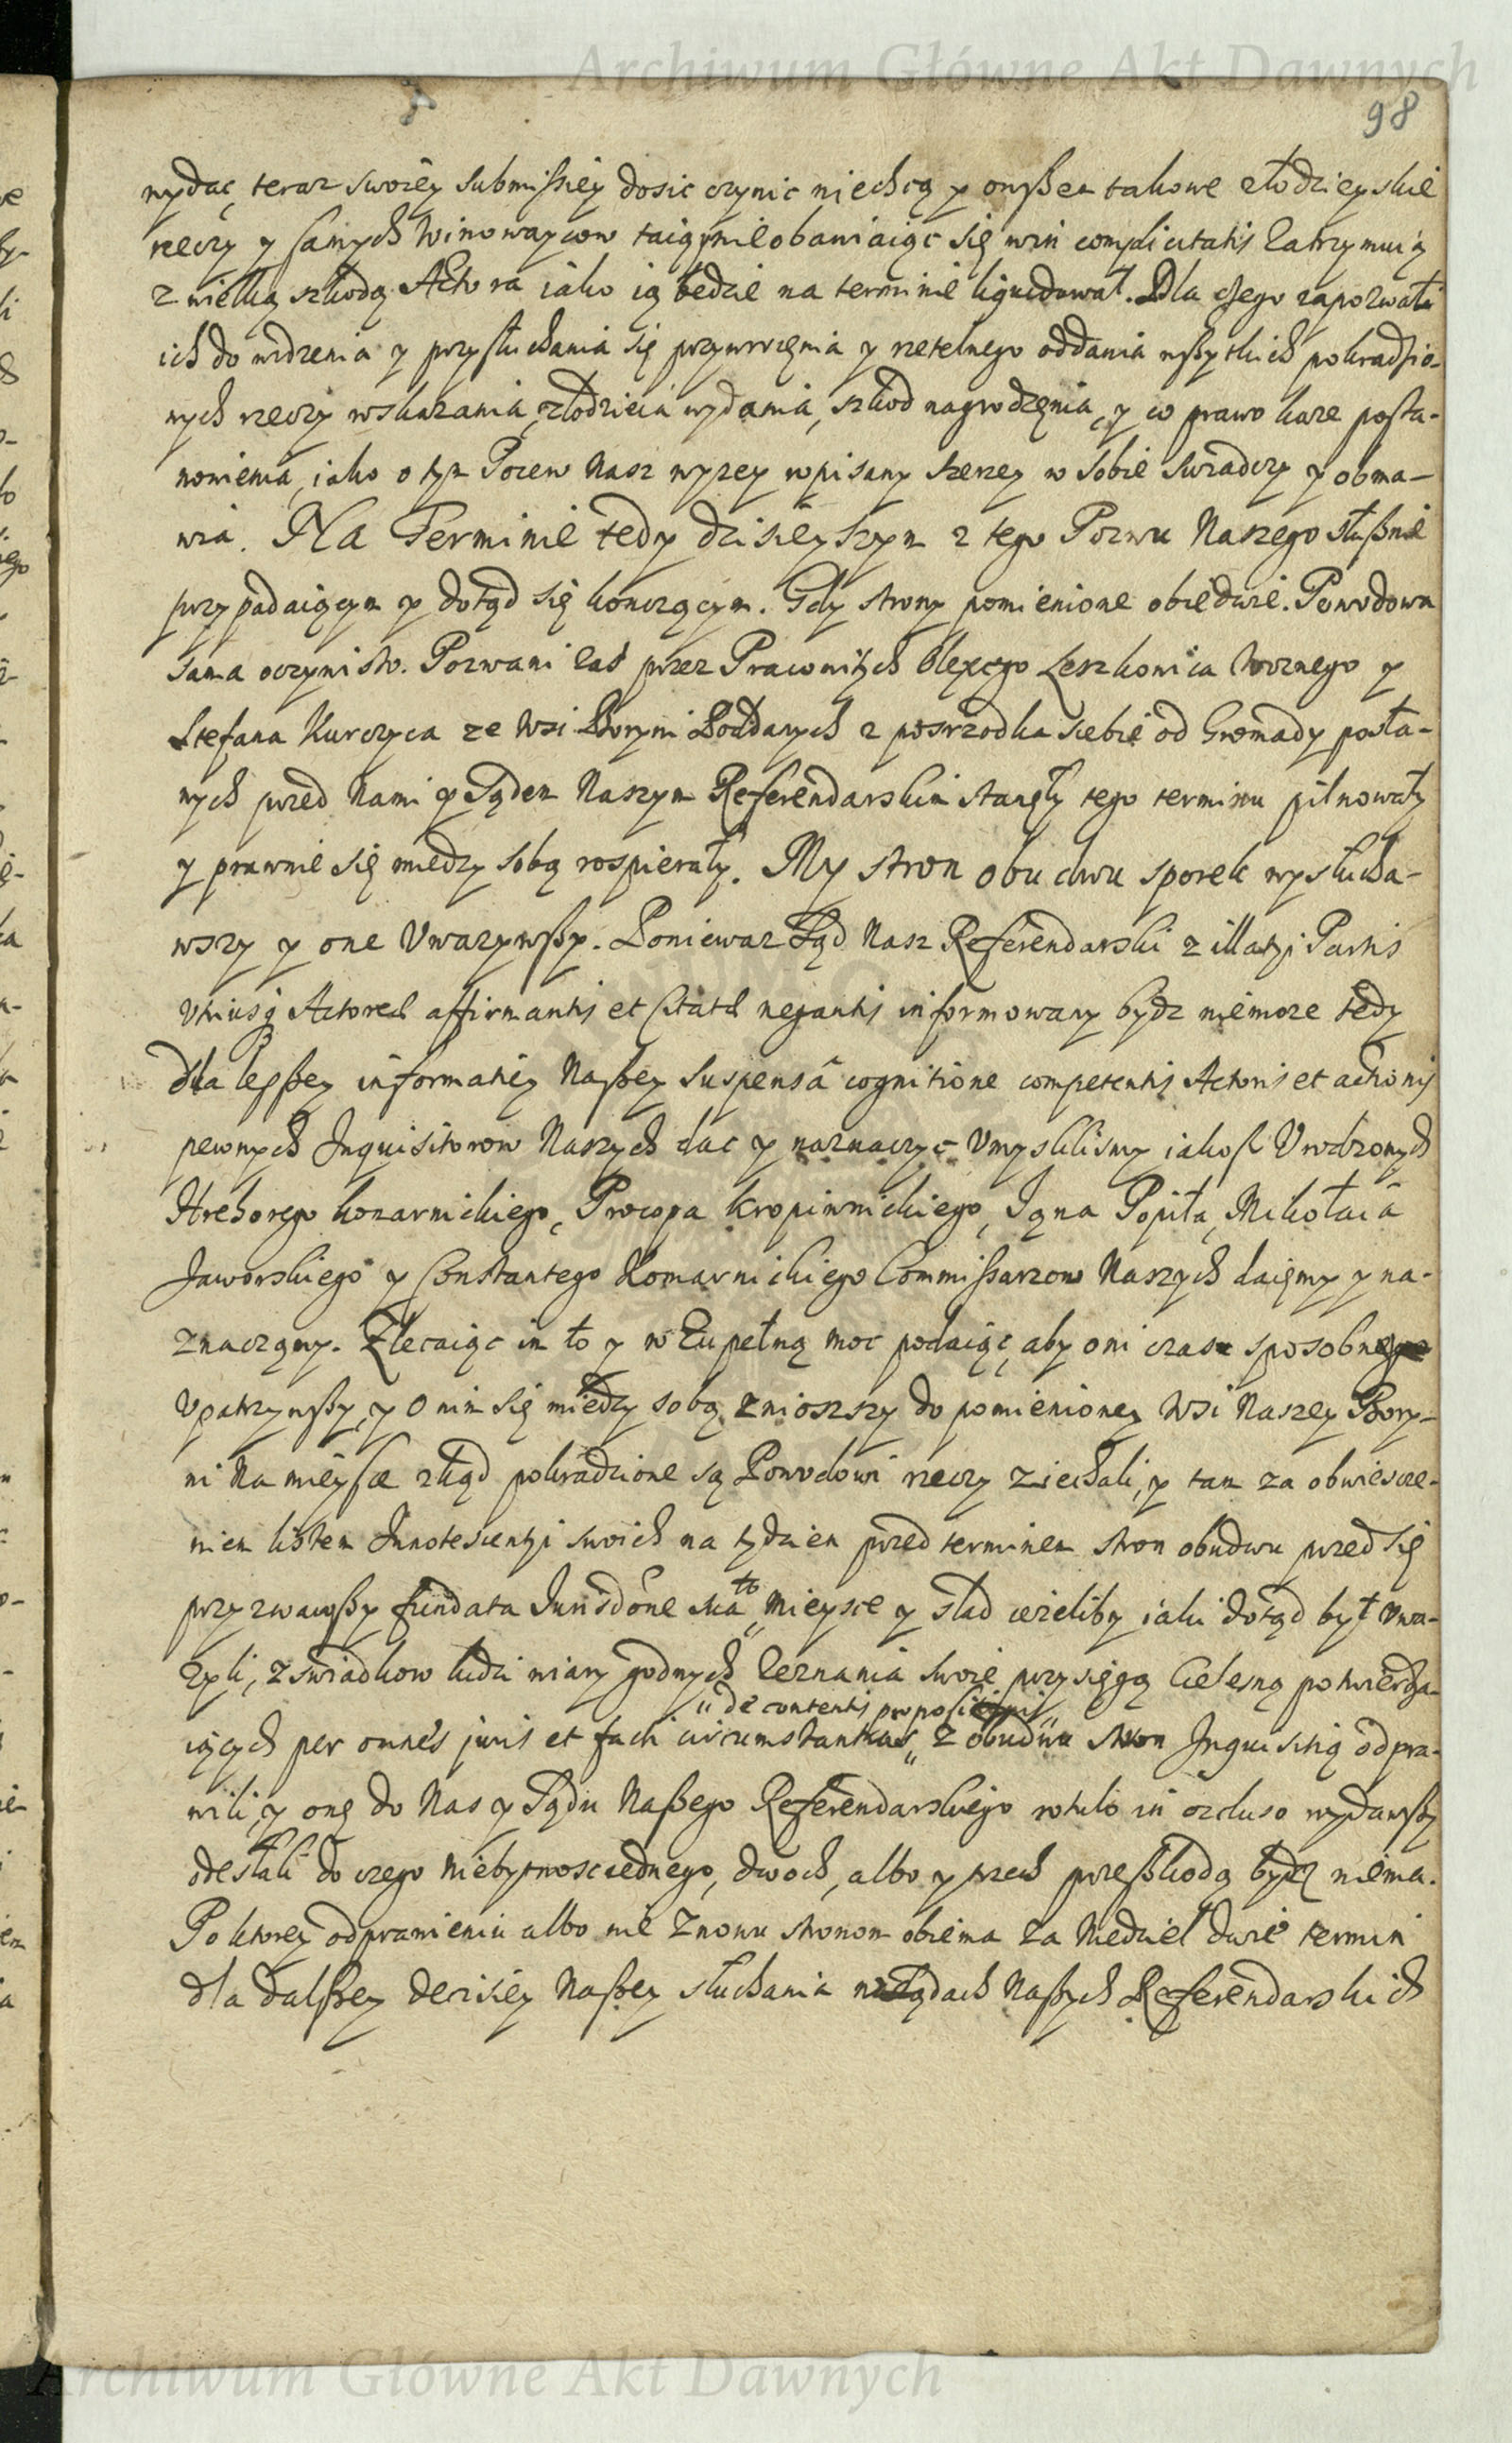 Archiwum Główne Akt Dawnych
98
wydac, teraz swoiey submissiey dosic czynic niechcą y owszem takowe złodzieyskie
rzeczy y samych Winowaycow taią y nieobawiaiąc się win complicitatis zatrzymuią
z wielką szkodą Actora iako ią będzie na terminie liquidował. Dla czego zapozwała
ich do widzenia y przysłuchania się przywrocęnia y rzetelnego oddania wszytkich pokradzio-
nych rzeczy wskazania, złodzieia wydania, szkod nagrodzęnia, y co prawo każe posta-
nowienia, iako o tym Pozew Nasz wyzey wpisany szerzey w sobie swiadczy y obma-
wia. Na Terminie tedy dzisieyszym z tego Pozwu Naszego słusznie
przypadaiącym y dotąd się konczącym. Gdy strony pomienione obiedwie. Powodowa
sama oczywisto. Pozwani zas przez Pracowitych Olexego Leszkowica Woznego y
Stefana Kurczyca ze Wsi Boryni Poddanych z posrzodka siebie od Gromady posła-
nych przed Nami y Sądem Naszym Referendarskim stanęły tego terminu pilnowały
y prawnie się miedzy sobą rospierały. My stron obudwu sporek wysłucha-
wszy y one Uwazywszy. Poniewaz Sąd Nasz Referendarski z illatyi Partis
utriusq Actoreae affirmantis et Citatae negantis informowany bydz niemoze tedy
dla lepszey informatiey Naszey suspensâ cognitione competentis Actoris et actionis
pewnych Inquisitorow Naszych dac y naznaczyc Umyslilismy iakosz Urodzonych
Hrehorego Komarnickiego, Procopa Kropiwnickiego, Iąna Popiła, Mikołaia
Jaworskiego y Constantego Komarnickiego Commissarzow Naszych daięmy y na-
znaczamy. Zlecaiąc im to y w Zupełną moc podaiąc, aby oni czas sposobny
Upatrzywszy, y o nim się miedzy sobą zniosszy do pomienioney Wsi Naszey Bory-
ni Na mieysce zkąd pokradzione są Powodowi rzeczy ziechali, y tam za obwiescze-
niem listem Innotescentyi swoich na tydzien przed terminem stron obudwu przed się
przyzwawszy fundata Jurisdóne sua to mieysce y slad iezeliby iaki dotąd był Uwa-
zyli, z swiadkow ludzi wiary godnych zeznania swoie przysięgą Cielesną potwierdza-
" de contentis propositionis "
iących per omnes juris et facti circumstantias " z obudwu stron Inquisitią odpra-
wili, y onę do Nas y Sądu Naszego Referendarskiego rotulo in ocluso wydawszy
odesłali do czego Niebytnosc iednego, dwoch, albo y trzech przeszkodą bydz niema.
Po ktorey odprawieniu albo nie znowu stronom obiema za Niedziel dwie termin
dla dalszey decisiey Naszey słuchania w Sądach Naszych Referendarskich
Archiwum Główne Akt Dawnych